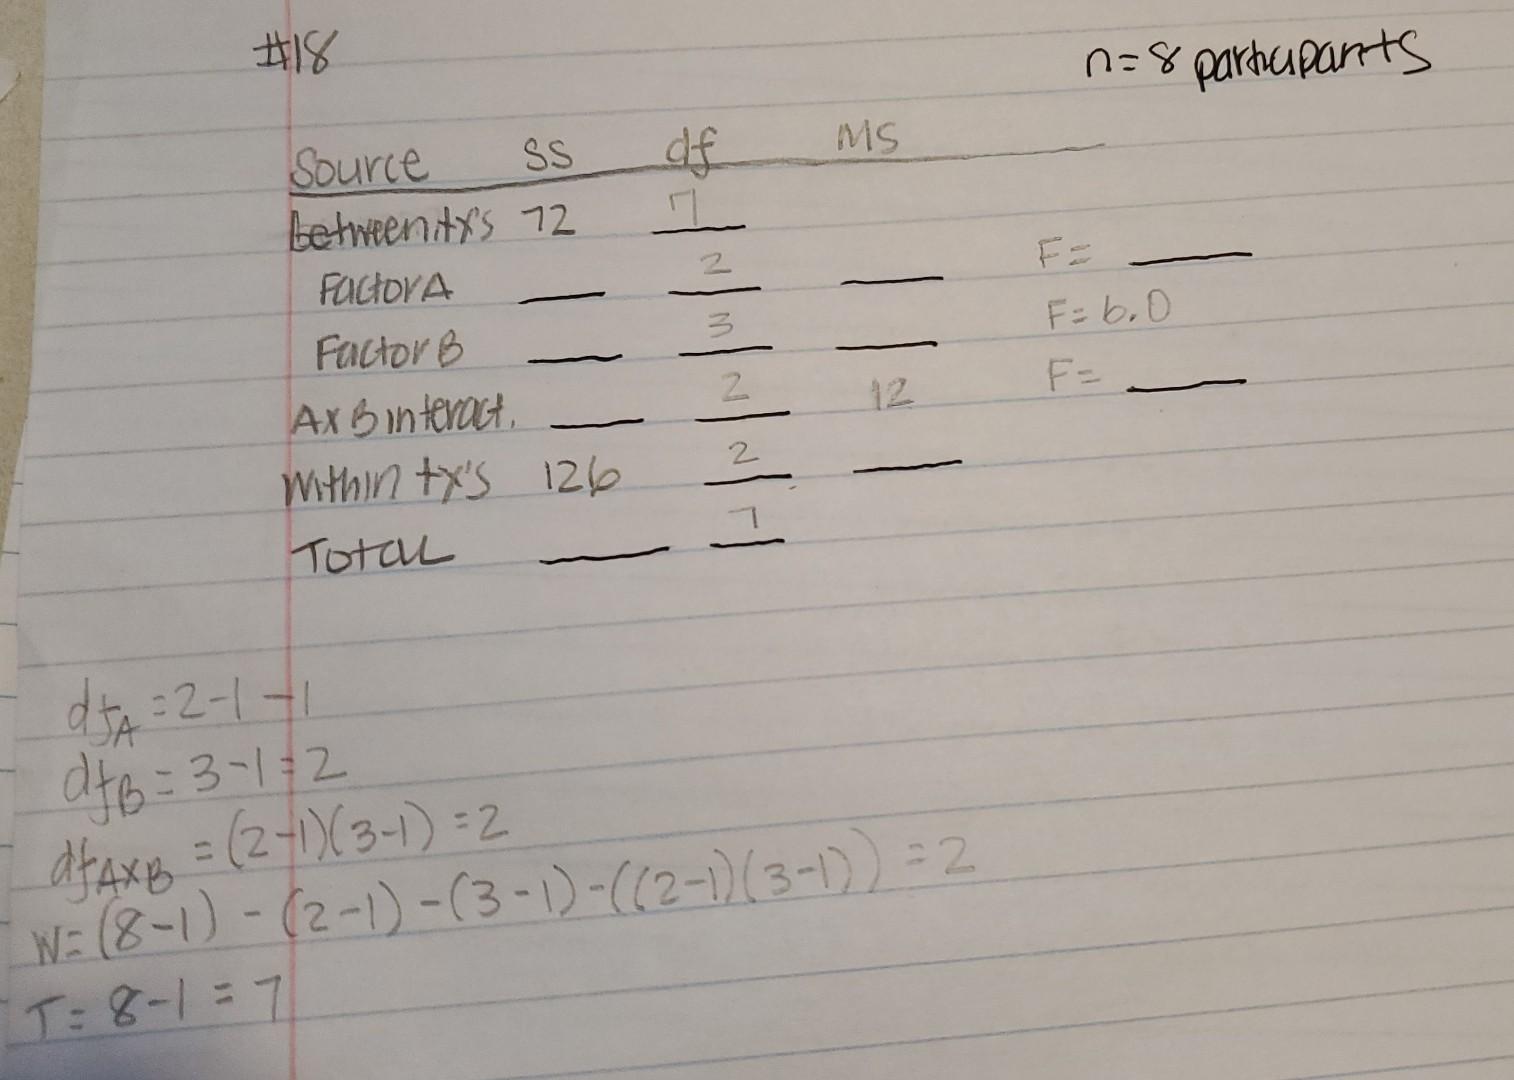 #18
n=8 participants
Source SS df MS
Between tx's 72 7
Factor A 2 F=
Factor B 3 F=6.0
AxB interact. 2 12 F=
Within tx's 126 2
Total 7
dfA=2-1-1
dfB=3-1=2
dfAxB=(2-1)(3-1)=2
W=(8-1)-(2-1)-(3-1)-((2-1)(3-1))=2
T=8-1=7